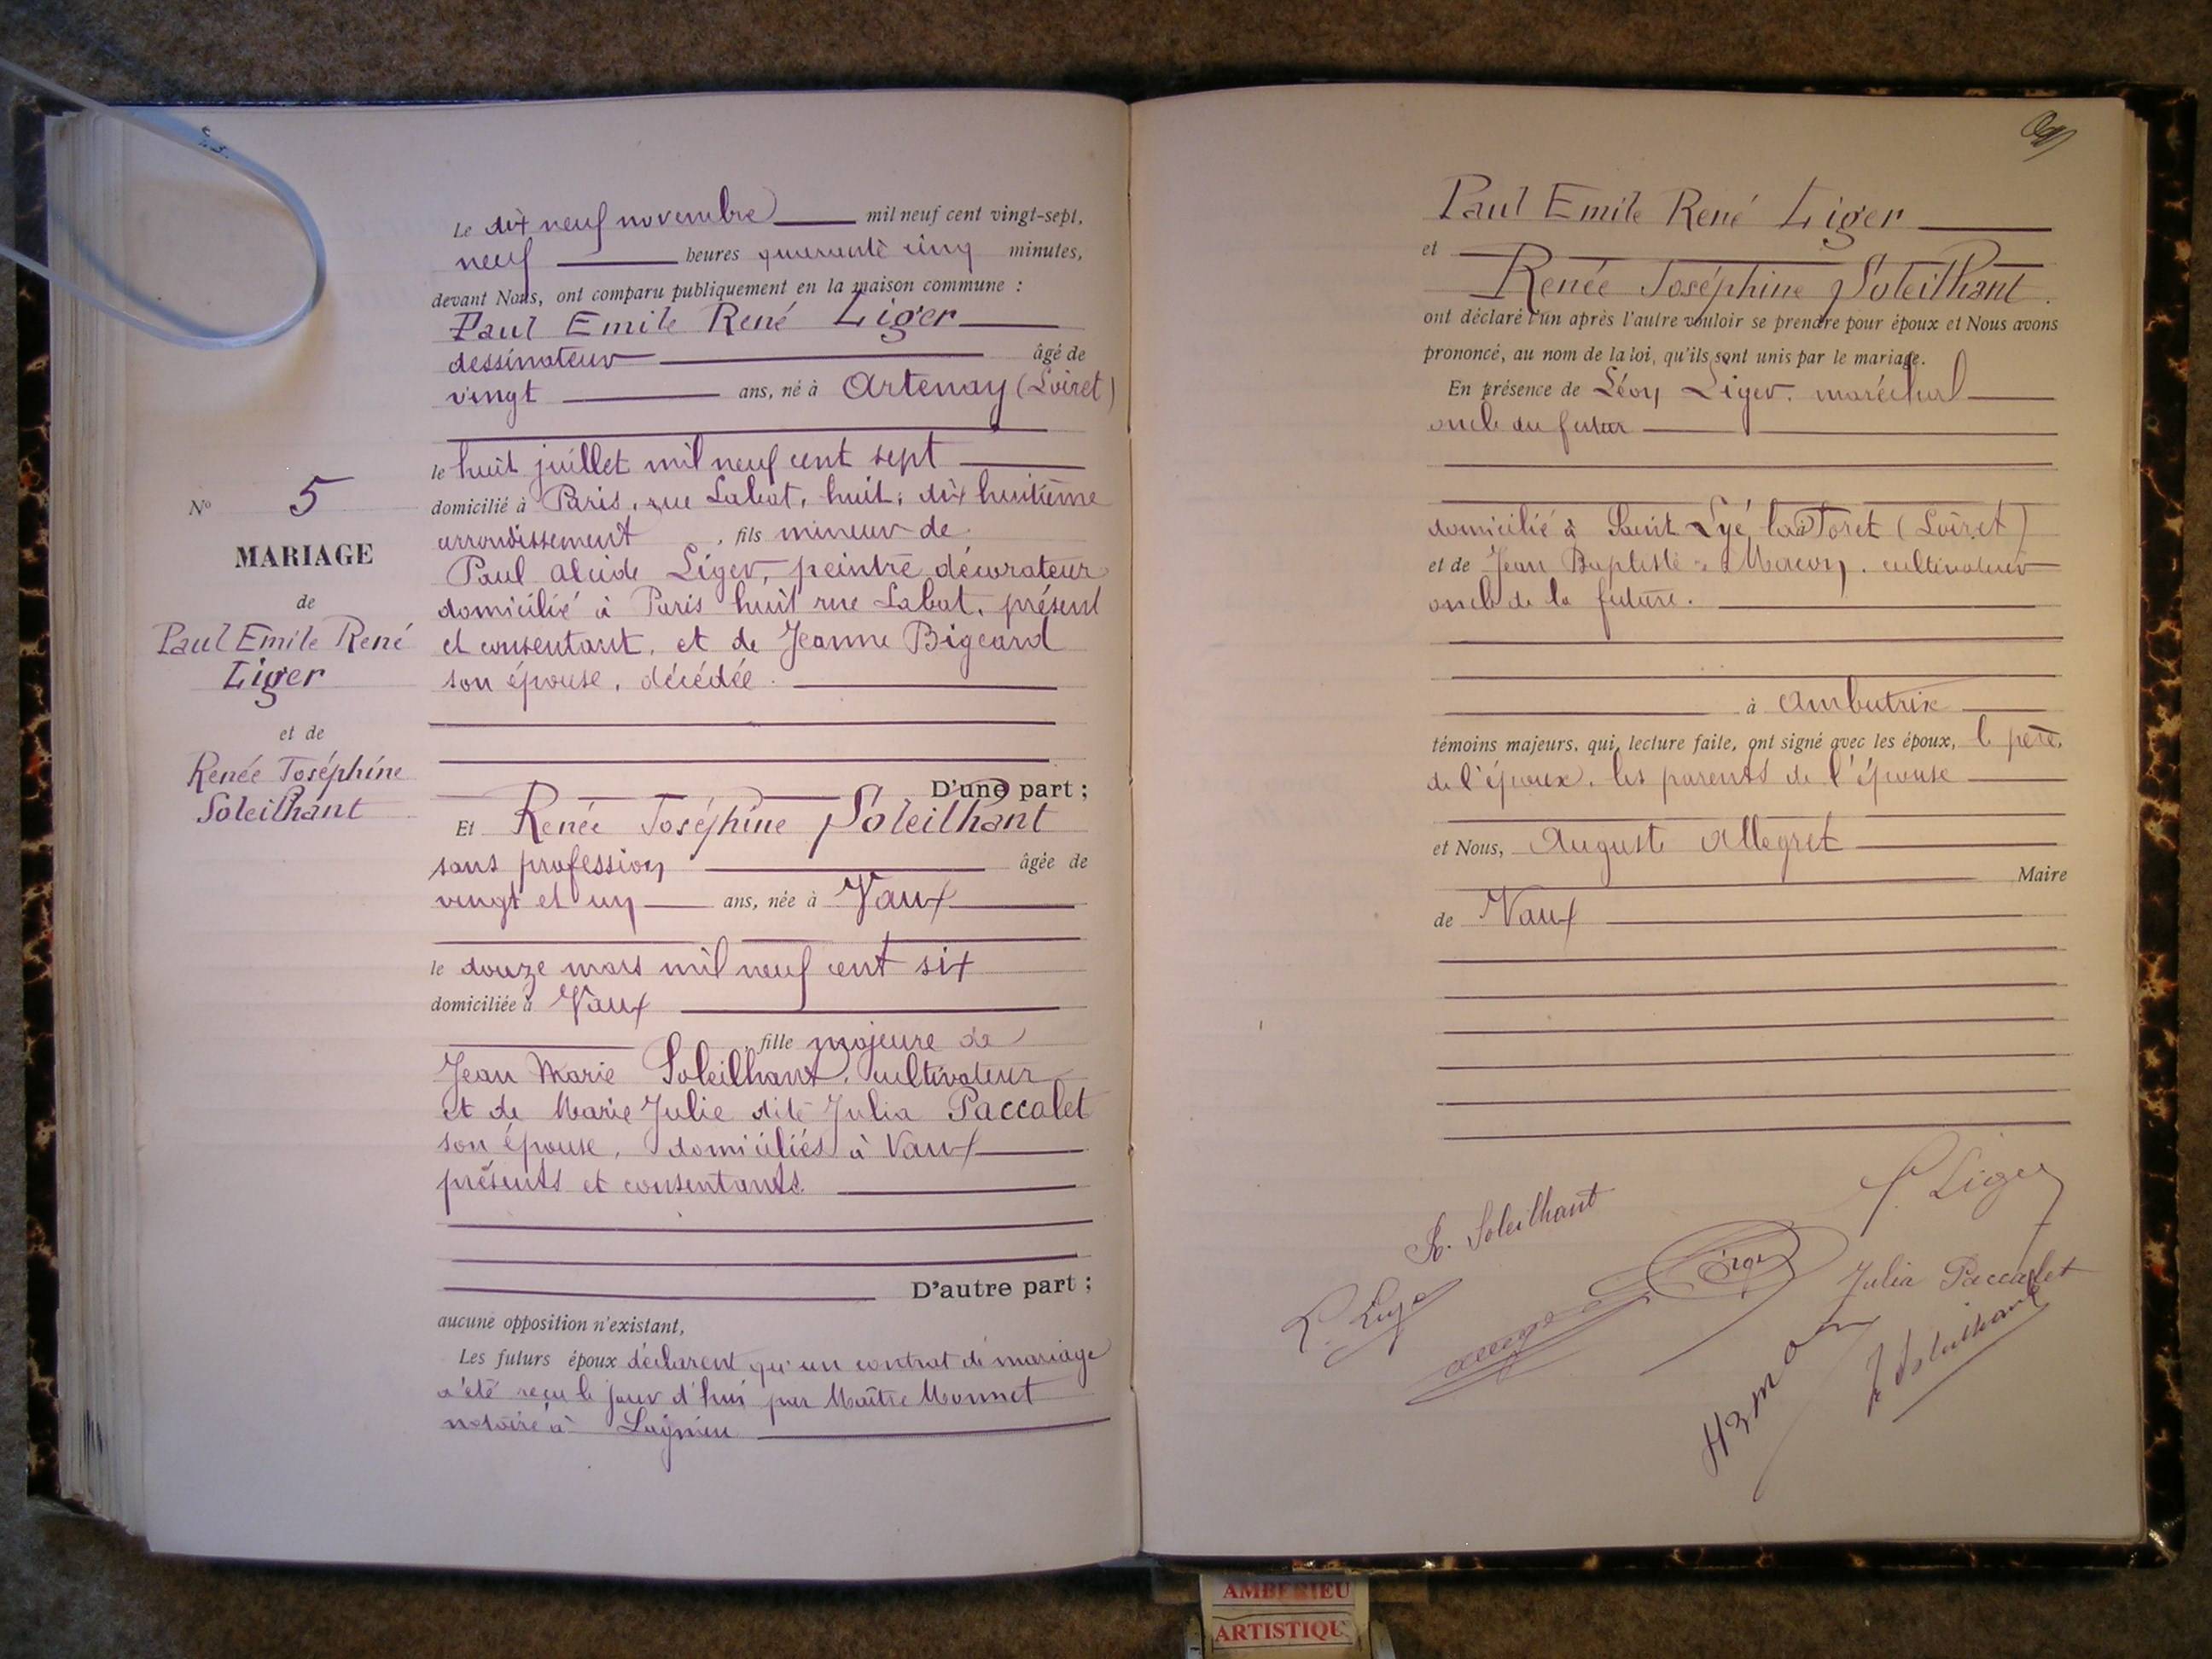 Le dix neuf novembre mil neuf cent vingt-sept,
neuf heures quarante cinq minutes,
devant Nous, ont comparu publiquement en la maison commune :
Paul Emile René Liger
dessinateur âgé de
vingt ans, né à Artenay (Loiret)
le huit juillet mil neuf cent sept
domicilié à Paris, rue Labat, huit, dix huitième
arrondissement , fils mineur de
Paul Alcide Liger, peintre décorateur
domicilié à Paris huit rue Labat, présent
et consentant, et de Jeanne Bigeard
son épouse, décédée.
D'une part ;
Et Renée Joséphine Soleilhant
sans profession âgée de
vingt et un ans, née à Vaux
le douze mars mil neuf cent six
domiciliée à Vaux
, fille majeure de
Jean Marie Soleilhant, cultivateur
et de Marie Julie dite Julia Paccalet
son épouse, domiciliés à Vaux
présents et consentants.
D'autre part ;
aucune opposition n'existant,
Les futurs époux déclarent qu'un contrat de mariage
a été reçu le jour d'hui par Maître Monnet
notaire à Lagnieu
N° 5
MARIAGE
de
Paul Emile René
Liger
et de
Renée Joséphine
Soleilhant
Paul Emile René Liger
et
Renée Joséphine Soleilhant.
ont déclaré l'un après l'autre vouloir se prendre pour époux et Nous avons
prononcé, au nom de la loi, qu'ils sont unis par le mariage.
En présence de Léon Liger, maréchal
oncle du futur
domicilié à Saint Lyé la Foret (Loiret)
et de Jean Baptiste Macon, cultivateur
oncle de la future.
à Ambutrix
témoins majeurs, qui, lecture faite, ont signé avec les époux, le père,
de l'époux, les parents de l'épouse
et Nous, Auguste Allegret
Maire
de Vaux
R. Soleilhant
P. Liger
L. Liger
Julia Paccalet
J Soleilhant
AMBERIEU
ARTISTIQU